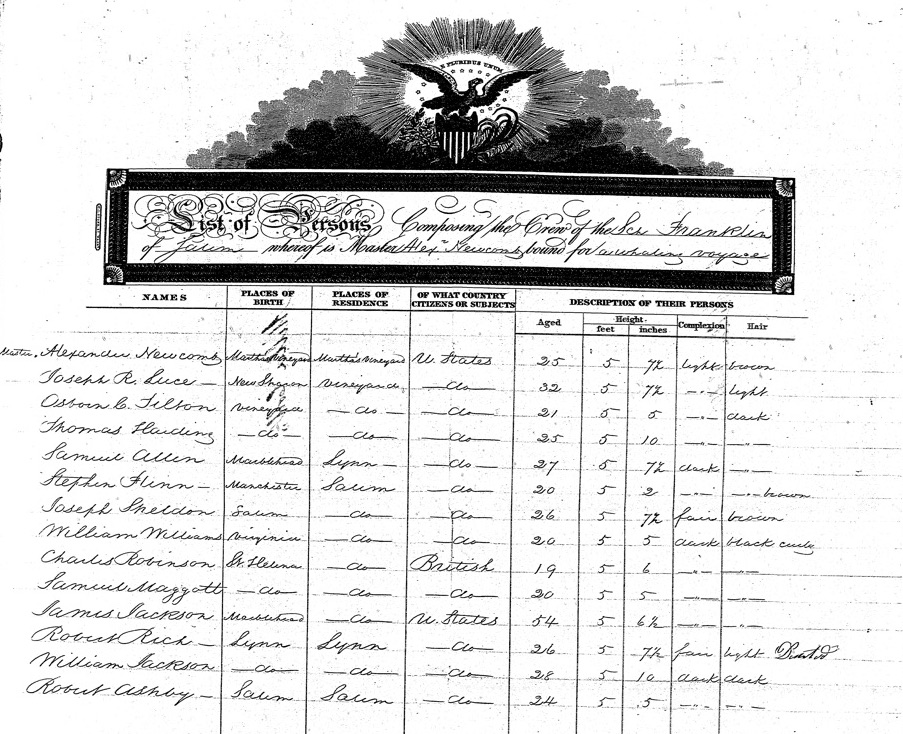 E PLURIBUS UNUM
List of Persons Composing the Crew of the Sch Franklin
of Salem whereof is Master Alexr Newcomb bound for a whaling voyage
NAMES PLACES OF BIRTH PLACES OF RESIDENCE OF WHAT COUNTRY CITIZENS OR SUBJECTS DESCRIPTION OF THEIR PERSONS
Aged Height. feet inches Complexion Hair
Master. Alexander Newcomb Marthas Vineyard Martha's Vineyard U. States 25 5 7½ light brown
Joseph R. Luce — New Sharon Vineyard — do — 32 5 7½ —"— light
Osborn C. Tilton Vineyard — do — — do — 21 5 5 —"— dark
Thomas Harding — do — — do — — do — 25 5 10 —"— —"—
Samuel Allen Marblehead Lynn — — do — 27 5 7½ dark —"—
Stephen Flinn — Manchester Salem — do — 20 5 2 —"— —"— brown
Joseph Sheldon Salem — do — — do — 26 5 7½ fair brown
William Williams Virginia — do — — do — 20 5 5 dark black curly
Charles Robinson St. Helena — do — British 19 5 6 —"— —"—
Samuel Maggott — do — — do — — do — 20 5 5 —"— —"—
James Jackson Marblehead — do — U. States 54 5 6½ —"— —"—
Robert Rich — Lynn Lynn — do — 26 5 7½ fair light
William Jackson — do — — do — — do — 28 5 10 dark dark
Robert Ashby — Salem Salem — do — 24 5 5 —"— —"—